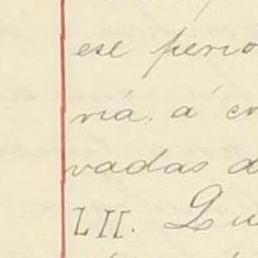 ese perio
ria, á co
vadas d
LII. Qu